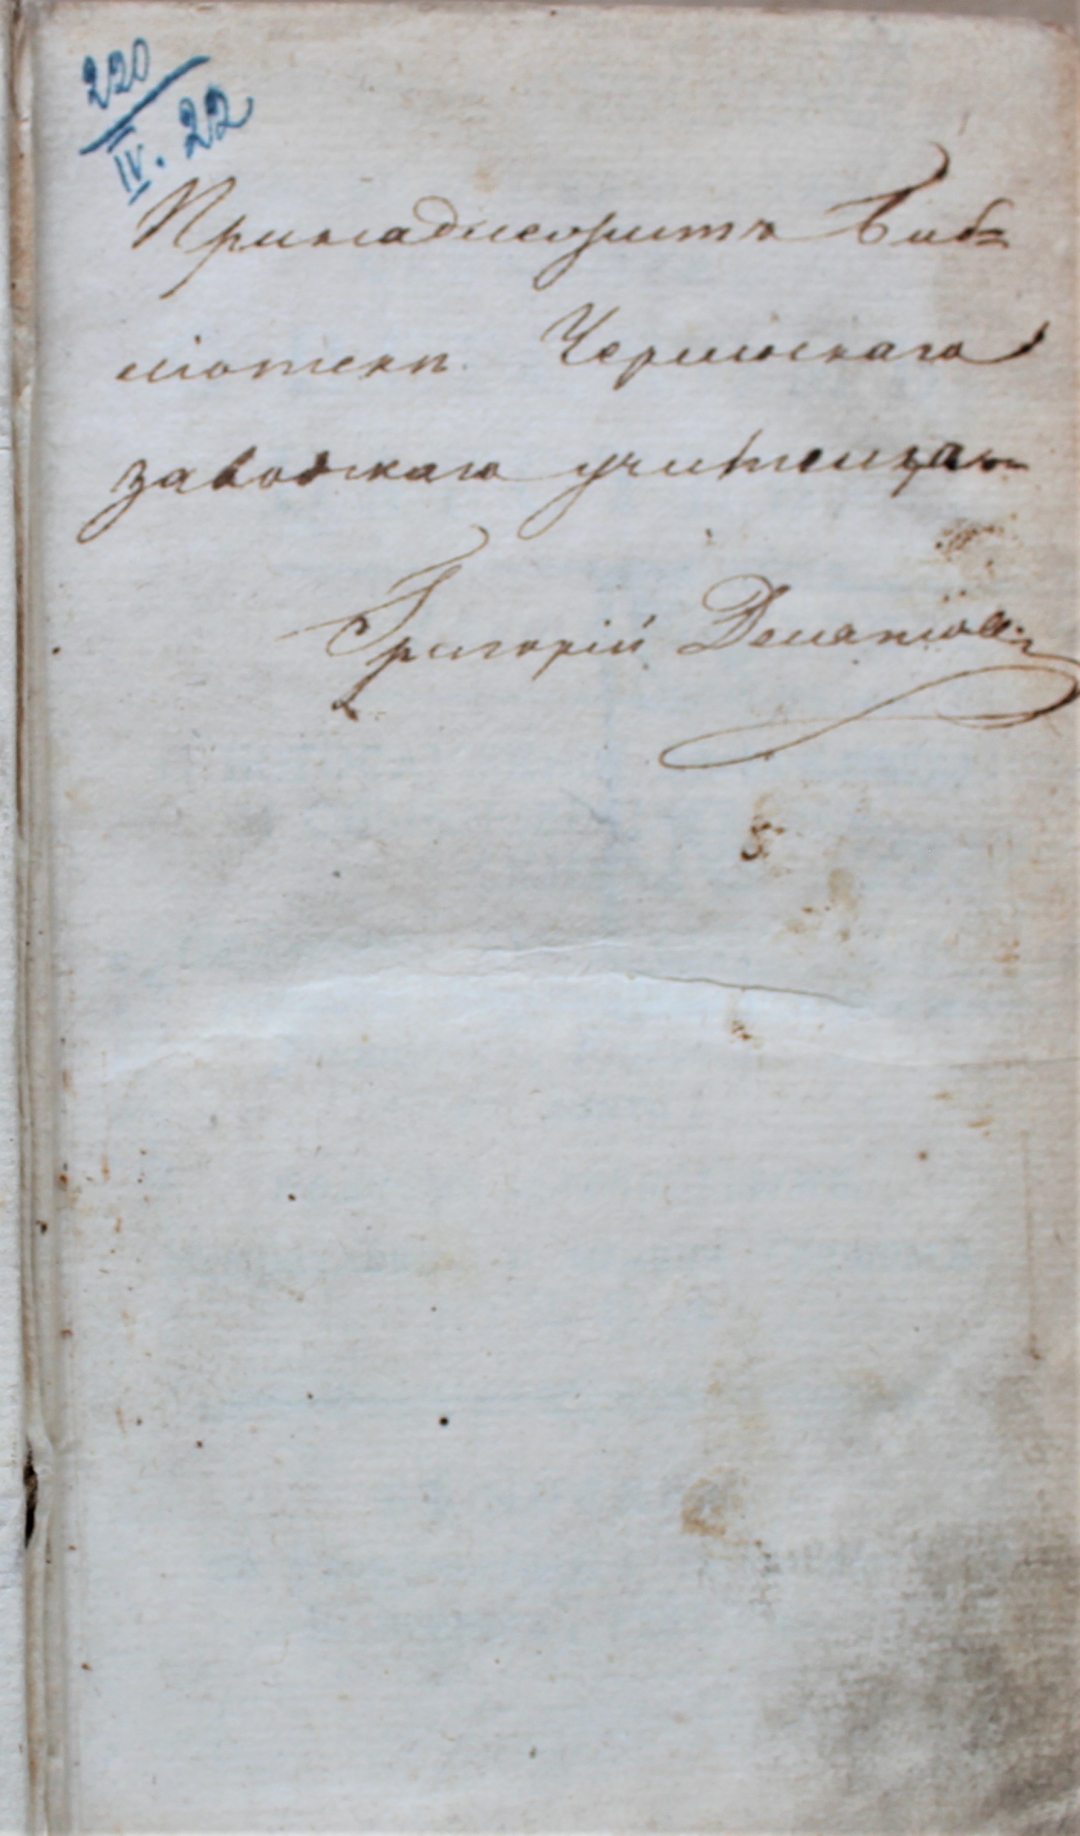 220
IV. 22
Принадлежитъ Биб=
лiотекѣ Чермоскаго
заводскаго училища
Григорiй